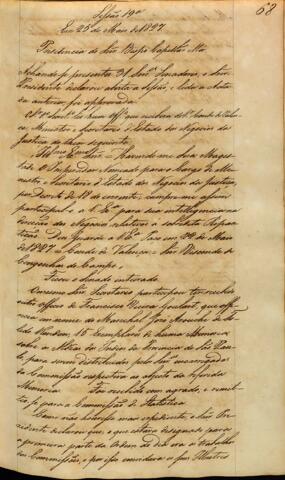 68
Sessão 19ª
Em 25 de Maio de 1827
Presidencia do Snr Bispo Capellão Mór
Achando-se presentes 31 Snrs Senadores, o Snr
Presidente declarou aberta a Sessão, e lida a Acta
da anterior foi approvada.
O Sr Secretario leu hum Officio
Ministro e Secretario d'Estado dos Negocios da
Justiça do theor seguinte
Illmo e Exmo Snr = Havendo-me Sua Mages-
tade o Imperador Nomeado para o Cargo de Mi-
nistro e Secretario d'Estado dos Negocios da Justiça,
por Decreto de 18 do corrente, cumpre-me assim
participar a V. Exª para sua intelligencia na
direcção dos Negocios relativos a sobredita Repar-
tição. Deos Guarde a V. Exª Paço em 22 de Maio
de 1827. Conde de Valença = Snr Visconde de
Congonhas do Campo.
Ficou o Senado inteirado.
O mesmo Snr Secretario participou ter recebido
outro Officio de Francisco
em nome do Marechal José Arouche de To-
ledo Rendon 15 Exemplares de huma Memoria
sobre as Aldeas dos Indios da Provincia de São Pau-
lo, para serem distribuidos pelos Snrs encarregados
da Commissão respectiva ao objecto da referida
Memoria. Foi recebida com agrado, e remet-
tida para a Commissão de Estatistica.
Como não houvesse mais expediente, o Snr Pre-
sidente declarou que, o que estava designado para
a primeira parte da Ordem do dia era o trabalho
das Commissões, e por isso convidava os seus Illustres